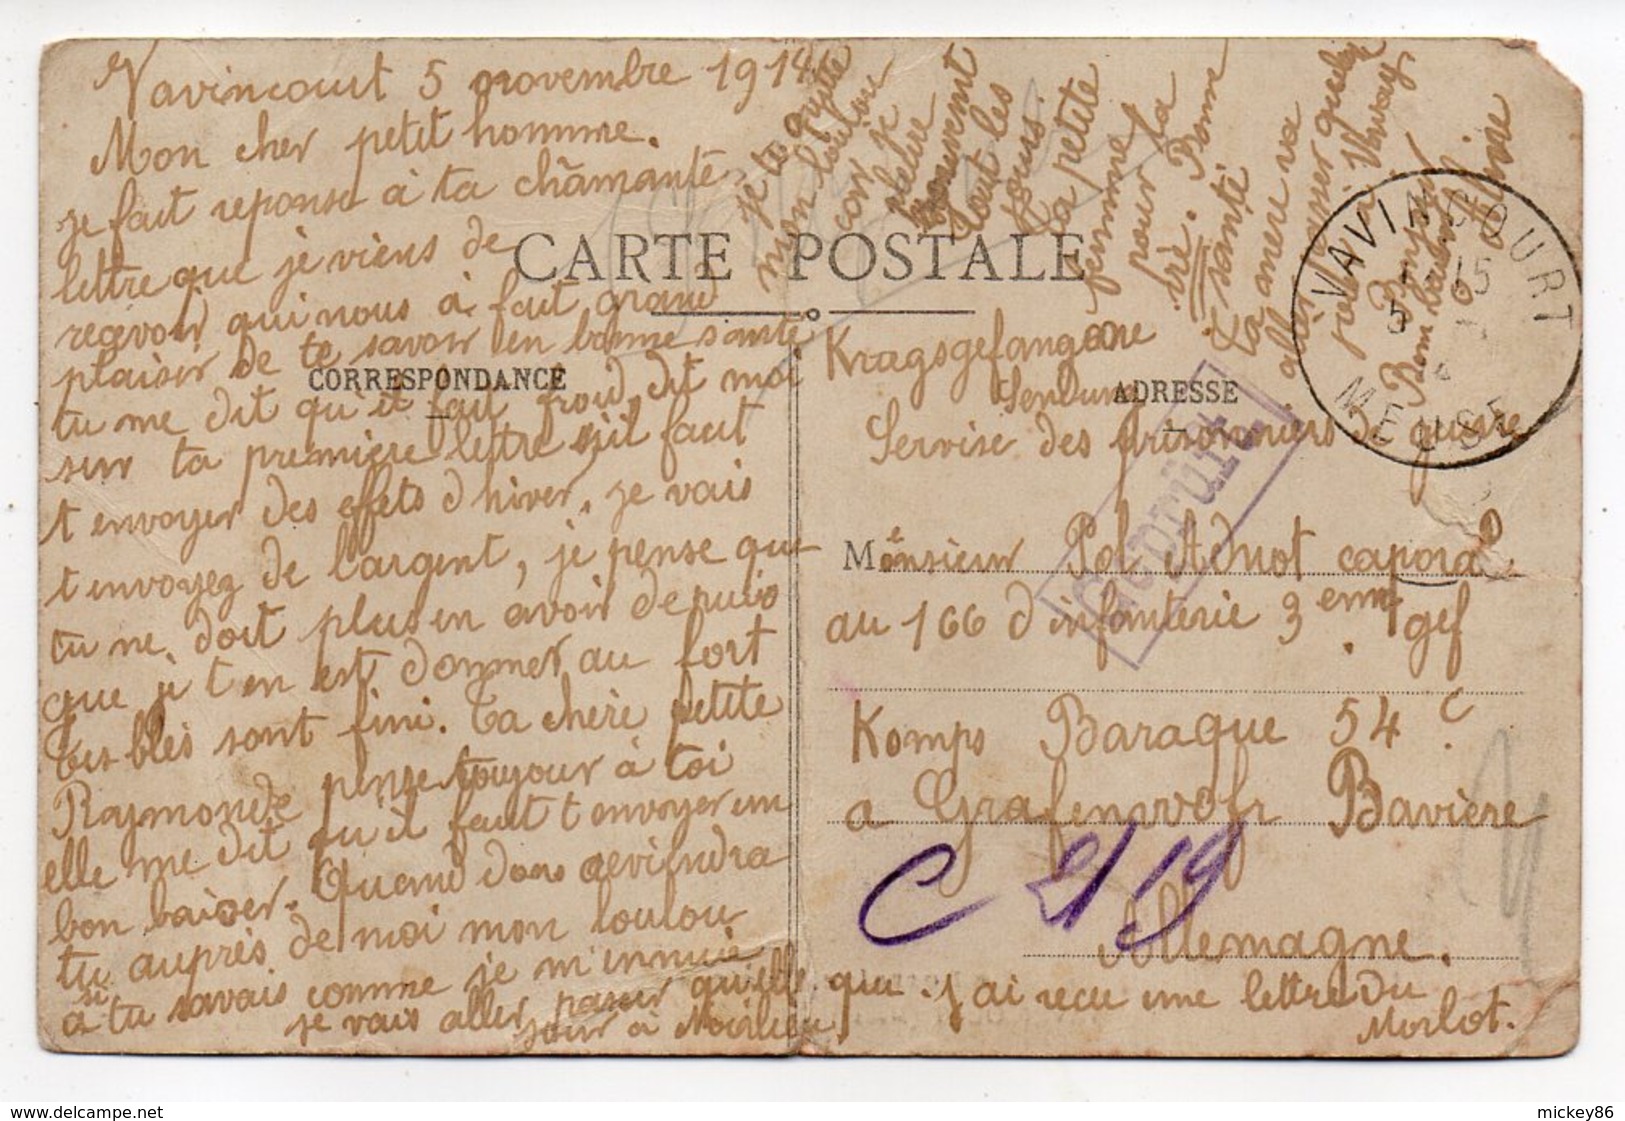 Vavincourt 5 novembre 1914
Mon cher petit homme.
je fait reponse à ta châmante
lettre que je viens de
recevoir qui nous à fait grand
plaisir de te savoir en bonne sante
tu me dit qu'il fait froid, dit moi
sur ta premiere lettre s'il faut
t envoyer des effets d hiver, je vais
t envoyez de l'argent, je pense que
tu ne doit plus en avoir depuis
que je t en est donner au fort
tes blés sont fini. Ta chère petite
Raymonde pense toujour à toi
elle me dit qu il faut t envoyer un
bon baiser. Quand donc reviendra
tu auprès de moi mon loulou
si
a tu savais comme je m'ennuie
je vais aller passer quelle que j ai recu une lettre du
jour à Morlot.
je te quitte
mon loulou
car je
pleure
souvent
tout les
jours.
ta petite
femme
pour la
vie. Bonne
santé
ta mere va
aller passer quelq
jour
Bonjour
CARTE POSTALE
CORRESPONDANCE
ADRESSE
VAVINCOURT
MEUSE
15
5
Kragsgefangene
Sendung
Servise des prisonniers de guerre
Geprüft
Monsieur Pol Adnot caporal
au 166 d infanterie 3 eme gef
Komps Baraque 54 c
a Grafenwohr Bavière
C 219
Allemagne.
mickey86
www.delcampe.net